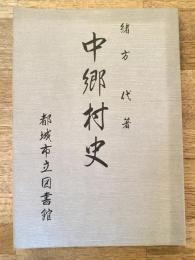 緒方代著
中郷村史
都城市立図書館